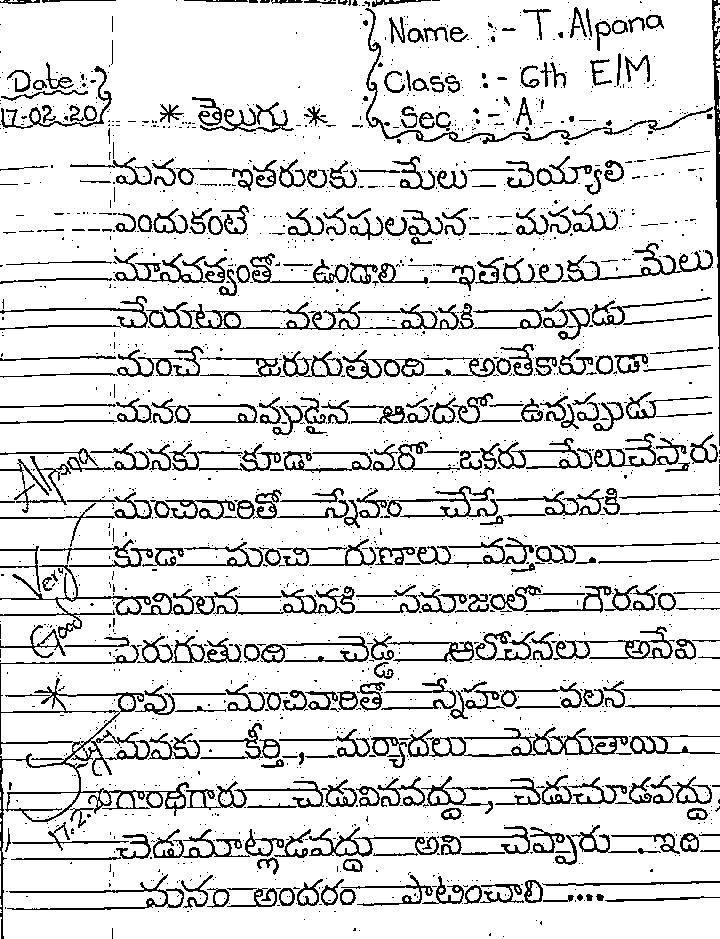 Name :- T. Alpana
Date :-
Class :- 6th E/M
17-02.20
* తెలుగు *
Sec :- 'A'.
మనం ఇతరులకు మేలు చెయ్యాలి
ఎందుకంటే మనషులమైన మనము
మానవత్వంతో ఉండాలి . ఇతరులకు మేలు
చేయటం వలన మనకి ఎప్పుడు
మంచే జరుగుతుంది . అంతేకాకూండా
మనం ఎప్పుడైన ఆపదలో ఉన్నప్పుడు
Alpana
మనకు కూడా ఎవరో ఒకరు మేలుచేస్తారు
మంచివారితో స్నేహం చేస్తే మనకి
Very
కూడా మంచి గుణాలు వస్తాయి .
Good
దానివలన మనకి సమాజంలో గౌరవం
పెరుగుతుంది . చెడ్డ ఆలోచనలు అనేవి
* రావు . మంచివారితో స్నేహం వలన
మనకు కీర్తి , మర్యాదలు పెరుగుతాయి .
17.2.20
గాంధీగారు చెడువినవద్దు , చెడుచూడవద్దు,
చెడుమాట్లాడవద్దు అని చెప్పారు . ఇది
మనం అందరం పాటించాలి ....